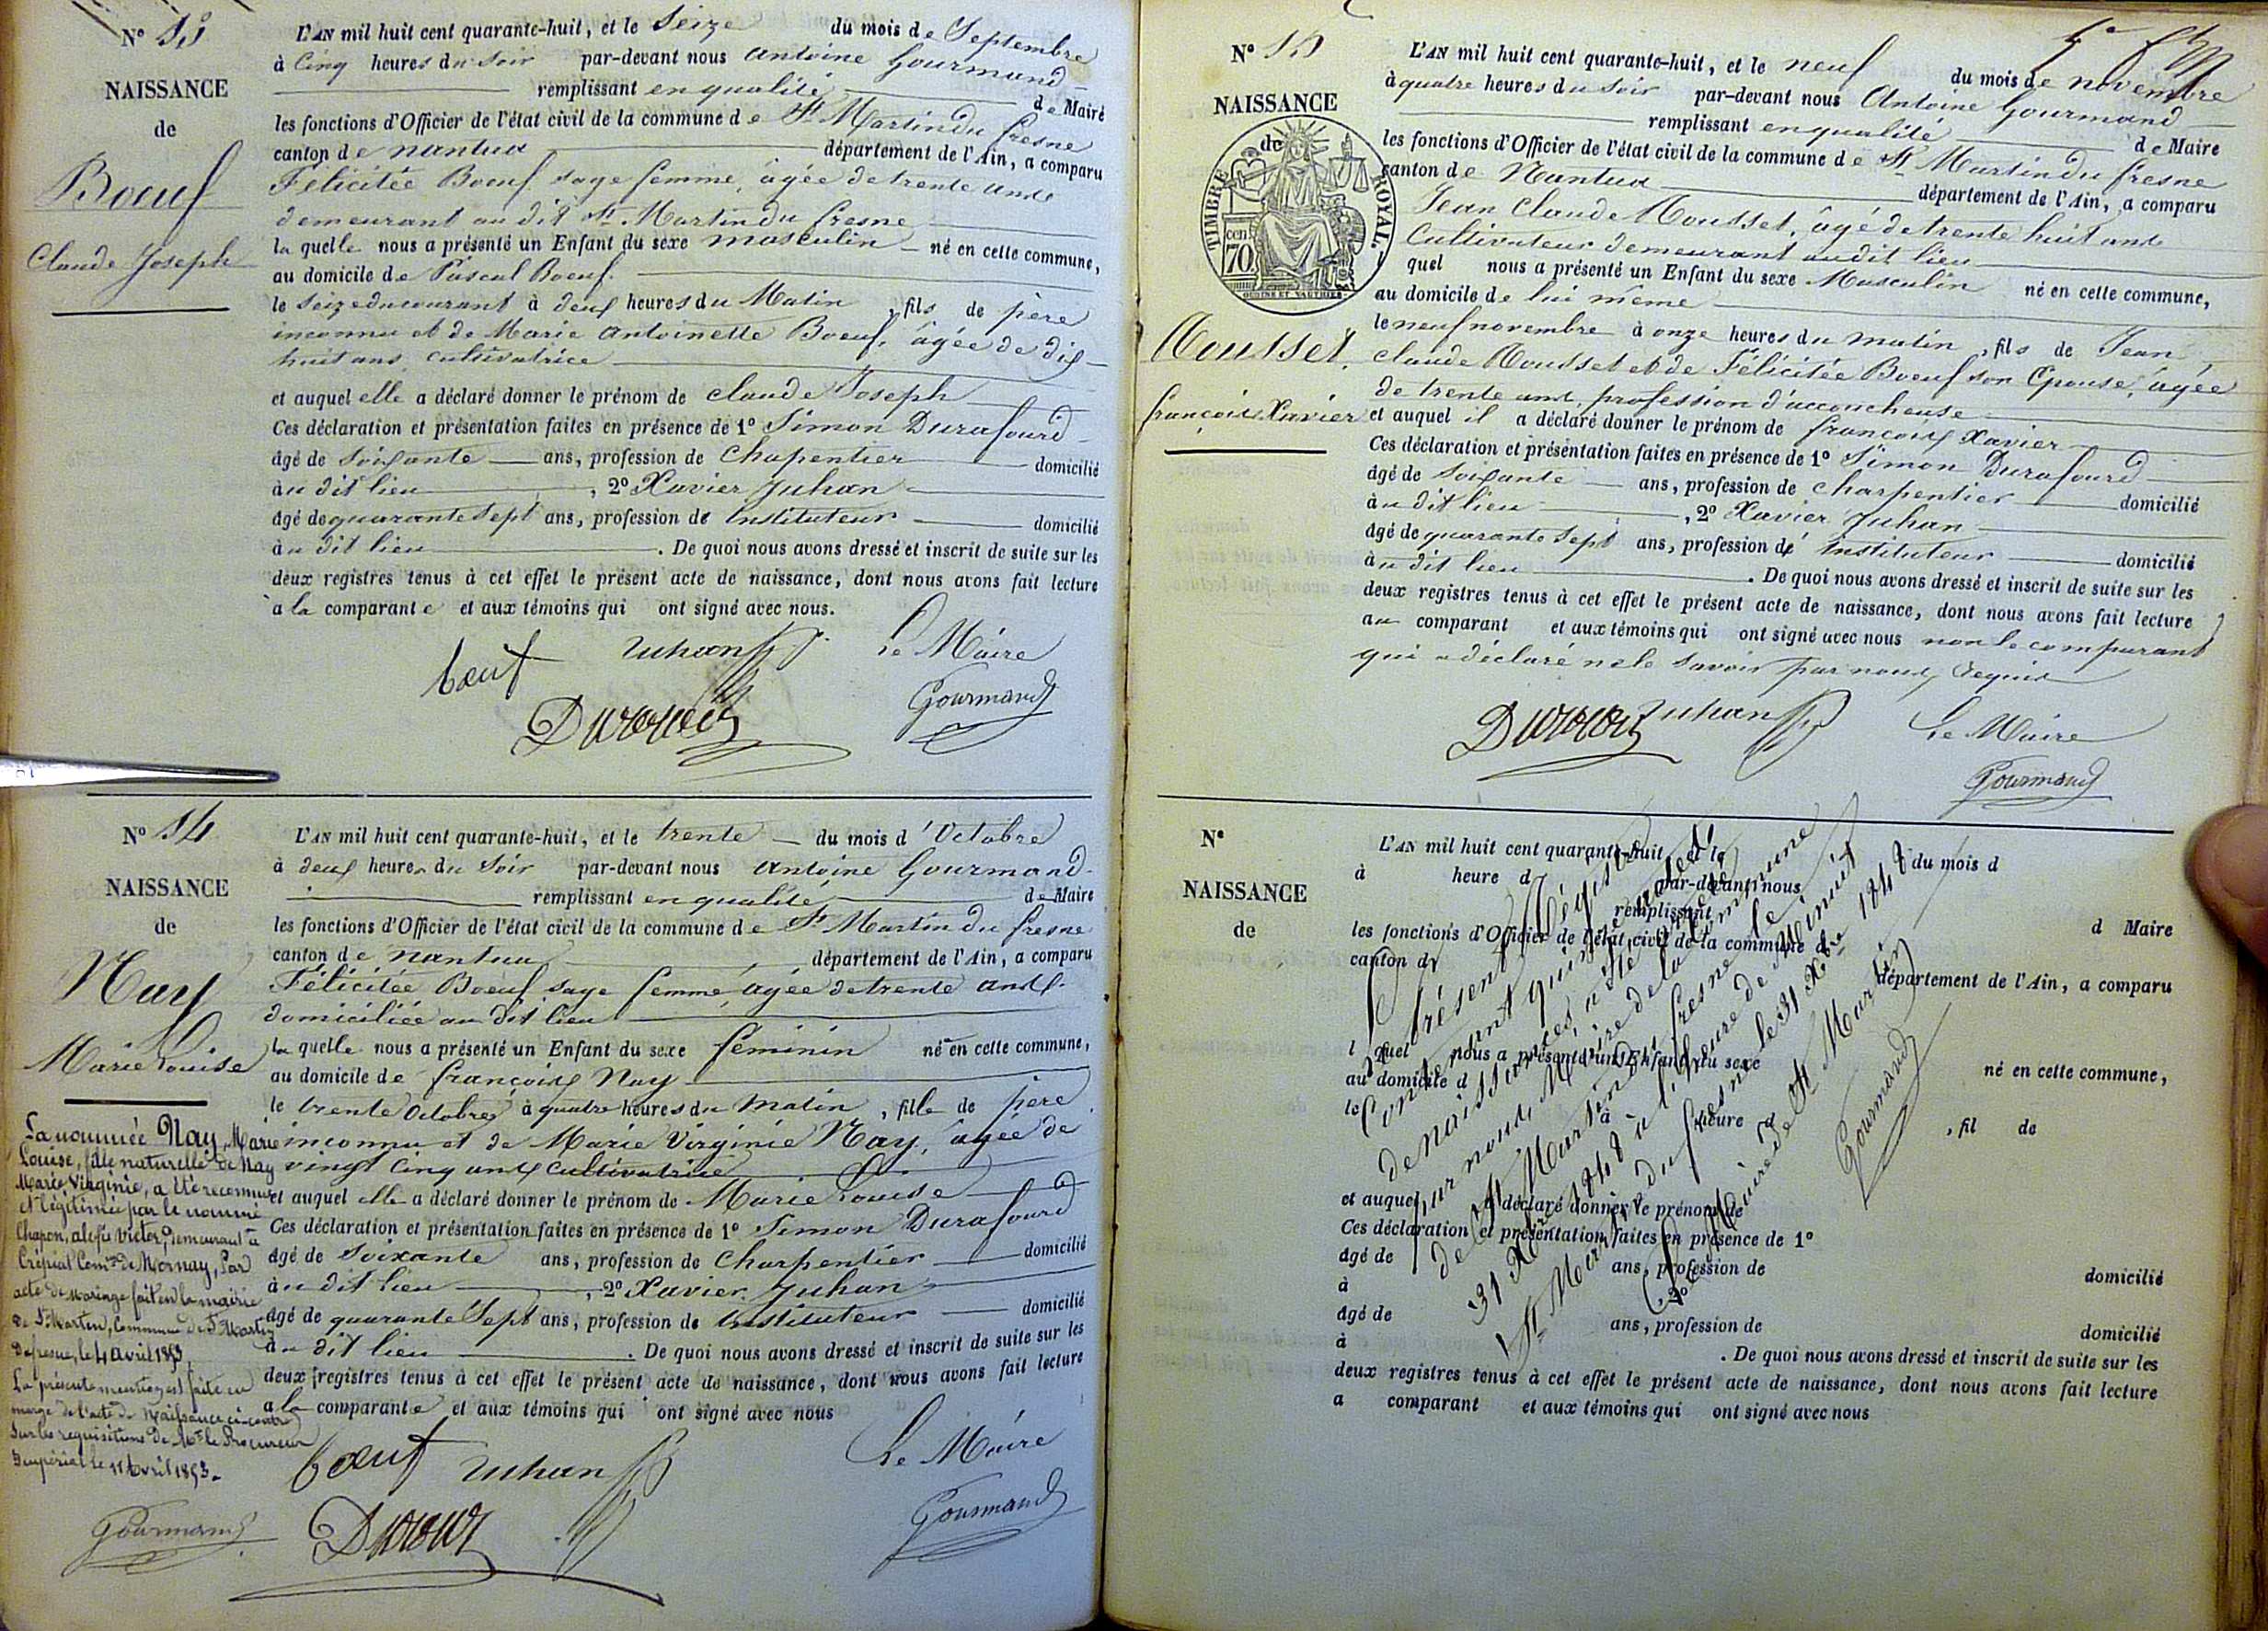 Nº 13
NAISSANCE
de
Boeuf
Claude Joseph
L'AN mil huit cent quarante-huit, et le Seize du mois de Septembre
à Cinq heures du Soir par-devant nous Antoine Gourmand
remplissant en qualité de Maire
les fonctions d'Officier de l'état civil de la commune de St Martin du fresne
canton de nantua département de l'Ain, a comparu
Félicitée Boeuf sage femme, âgée de trente ans
demeurant au dit St Martin du fresne
la quelle nous a présenté un Enfant du sexe masculin né en cette commune,
au domicile de Pascal Boeuf.
le Seize du courant à deux heures du Matin, fils de père
inconnu et de Marie Antoinette Boeuf, âgée de dix-
huit ans, cultivatrice
et auquel elle a déclaré donner le prénom de Claude Joseph
Ces déclaration et présentation faites en présence de 1º Simon Durafourd
âgé de Soixante ans, profession de Chapentier domicilié
àu dit lieu, 2º Xavier Juhan
âgé de quarante Sept ans, profession de Instituteur domicilié
àu dit lieu. De quoi nous avons dressé et inscrit de suite sur les
deux registres tenus à cet effet le présent acte de naissance, dont nous avons fait lecture
à la comparante et aux témoins qui ont signé avec nous.
boeuf Juhan Le Maire
Gourmand
Nº 14
NAISSANCE
de
Nay
Marie Louise
L'AN mil huit cent quarante-huit, et le trente du mois d'Octobre
à deux heures du Soir par-devant nous Antoine Gourmand
remplissant en qualité de Maire
les fonctions d'Officier de l'état civil de la commune de St Martin du fresne
canton de nantua département de l'Ain, a comparu
Félicitée Boeuf sage femme âgée de trente ans
domiciliée au dit lieu
la quelle nous a présenté un Enfant du sexe féminin né en cette commune,
au domicile de françois Nay
le trente Octobre à quatre heures du matin, fille de père
inconnu et de Marie Virginie Nay, âgée de
vingt cinq ans cultivatrice
et auquel elle a déclaré donner le prénom de Marie Louise
Ces déclaration et présentation faites en présence de 1º Simon Durafourd
âgé de Soixante ans, profession de Charpentier domicilié
àu dit lieu, 2º Xavier Juhan
âgé de quarante Sept ans, profession de Instituteur domicilié
àu dit lieu. De quoi nous avons dressé et inscrit de suite sur les
deux registres tenus à cet effet le présent acte de naissance, dont nous avons fait lecture
a la comparante et aux témoins qui ont signé avec nous
boeuf Juhan Le Maire
Gourmand
La nommée Nay, Marie
Louise, fille naturelle de Nay
Marie Virginie, a été reconnue
et légitimée par le nommé
Chapon, Victor, demeurant à
Crépiat Comne de Mornay, Par
acte de mariage fait en la mairie
de St Martin, Commune de St Martin
Dufresne, le 4 Avril 1853.
La présente mention est faite en
marge de l'acte de Naissance ci-contre
Sur les requisitions de Mr le Procureur
Impérial le 11 Avril 1853.
Gourmand
Nº 15
NAISSANCE
de
TIMBRE ROYAL.
70 cen
Mousset,
françois Xavier
L'AN mil huit cent quarante-huit, et le neuf du mois de novembre
à quatre heures du Soir par-devant nous Antoine Gourmand
remplissant en qualité de Maire
les fonctions d'Officier de l'état civil de la commune de St Martin du fresne
canton de Nantua département de l'Ain, a comparu
Jean Claude Mousset, âgé de trente huit ans
Cultivateur demeurant audit lieu
quel nous a présenté un Enfant du sexe Masculin né en cette commune,
au domicile de lui même
le neuf novembre à onze heures du matin, fils de Jean
Claude Mousset et de Félicitée Boeuf son Epouse, âgée
de trente ans, profession d'accoucheuse
et auquel il a déclaré donner le prénom de françois Xavier
Ces déclaration et présentation faites en présence de 1º Simon Durafourd
âgé de Soixante ans, profession de charpentier domicilié
àu dit lieu, 2º Xavier Juhan
âgé de quarante Sept ans, profession de Instituteur domicilié
àu dit lieu. De quoi nous avons dressé et inscrit de suite sur les
deux registres tenus à cet effet le présent acte de naissance, dont nous avons fait lecture
au comparant et aux témoins qui ont signé avec nous non le comparant
qui a déclaré ne le Savoir par nous, Requis
Juhan Le Maire
Gourmand
Nº
NAISSANCE
de
L'AN mil huit cent quarante-huit, et le du mois d
à heure d par-devant nous
remplissant d Maire
les fonctions d'Officier de l'état civil de la commune d
canton d département de l'Ain, a comparu
l quel nous a présenté un Enfant du sexe né en cette commune,
au domicile d
le à heure d, fil de
et auquel a déclaré donner le prénom de
Ces déclaration et présentation faites en présence de 1º
âgé de ans, profession de domicilié
à, 2º
âgé de ans, profession de domicilié
à. De quoi nous avons dressé et inscrit de suite sur les
deux registres tenus à cet effet le présent acte de naissance, dont nous avons fait lecture
a comparant et aux témoins qui ont signé avec nous
Le présent Régistre
Contenant quinze actes
de naissances, a été
par nous, Maire de la Commune
de St Martin du fresne le
31 Xbre 1848 à l'heure de Minuit
St Martin du fresne le 31 Xbre 1848
Le Maire de St Martin
Gourmand